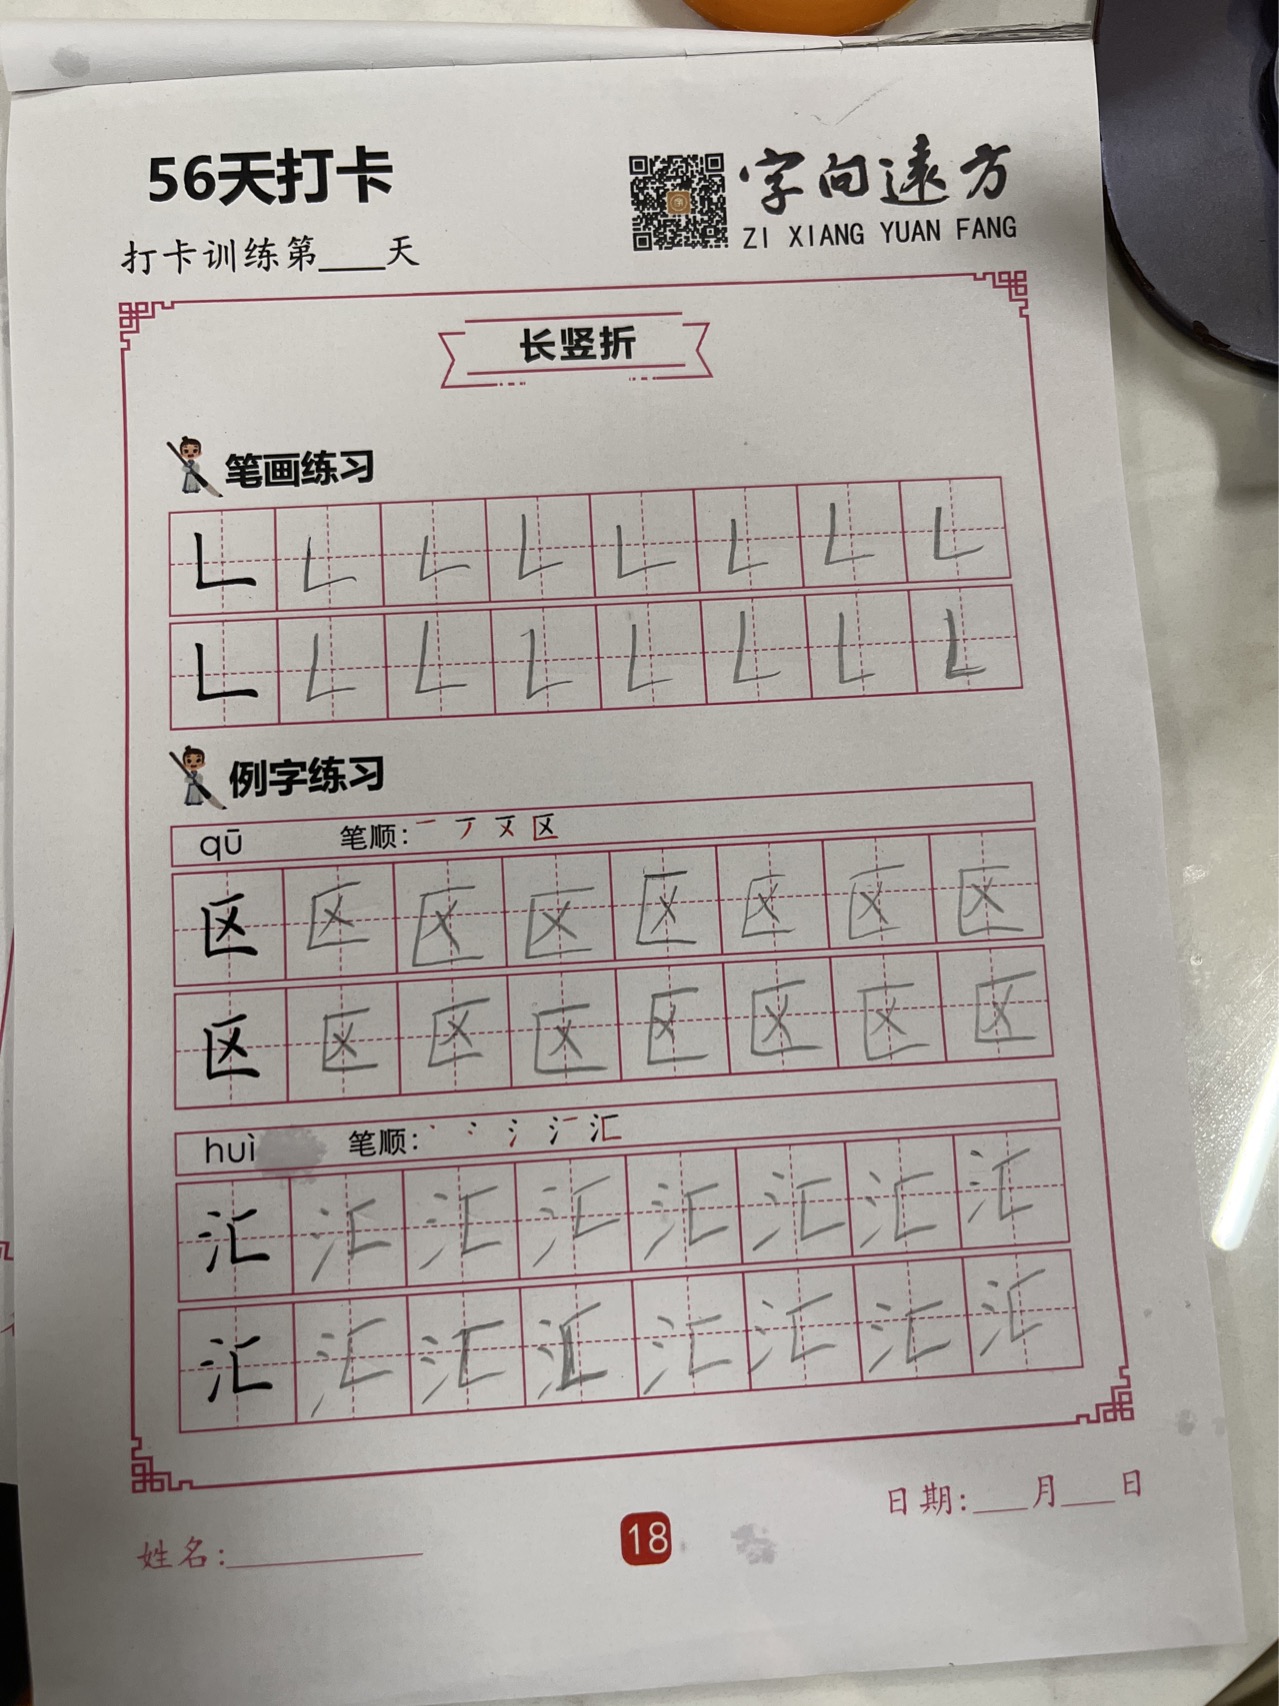 56天打卡
字向遠方
ZI XIANG YUAN FANG
打卡训练第____天
长竖折
笔画练习
𠃊 𠃊 𠃊 𠃊 𠃊 𠃊 𠃊 𠃊
𠃊 𠃊 𠃊 𠃊 𠃊 𠃊 𠃊 𠃊
例字练习
qū 笔顺: 一 丆 又 区
区 区 区 区 区 区 区 区
区 区 区 区 区 区 区 区
huì 笔顺: 丶 冫 氵 汇
汇 汇 汇 汇 汇 汇 汇 汇
汇 汇 汇 汇 汇 汇 汇 汇
日期:___月___日
姓名:___________
18